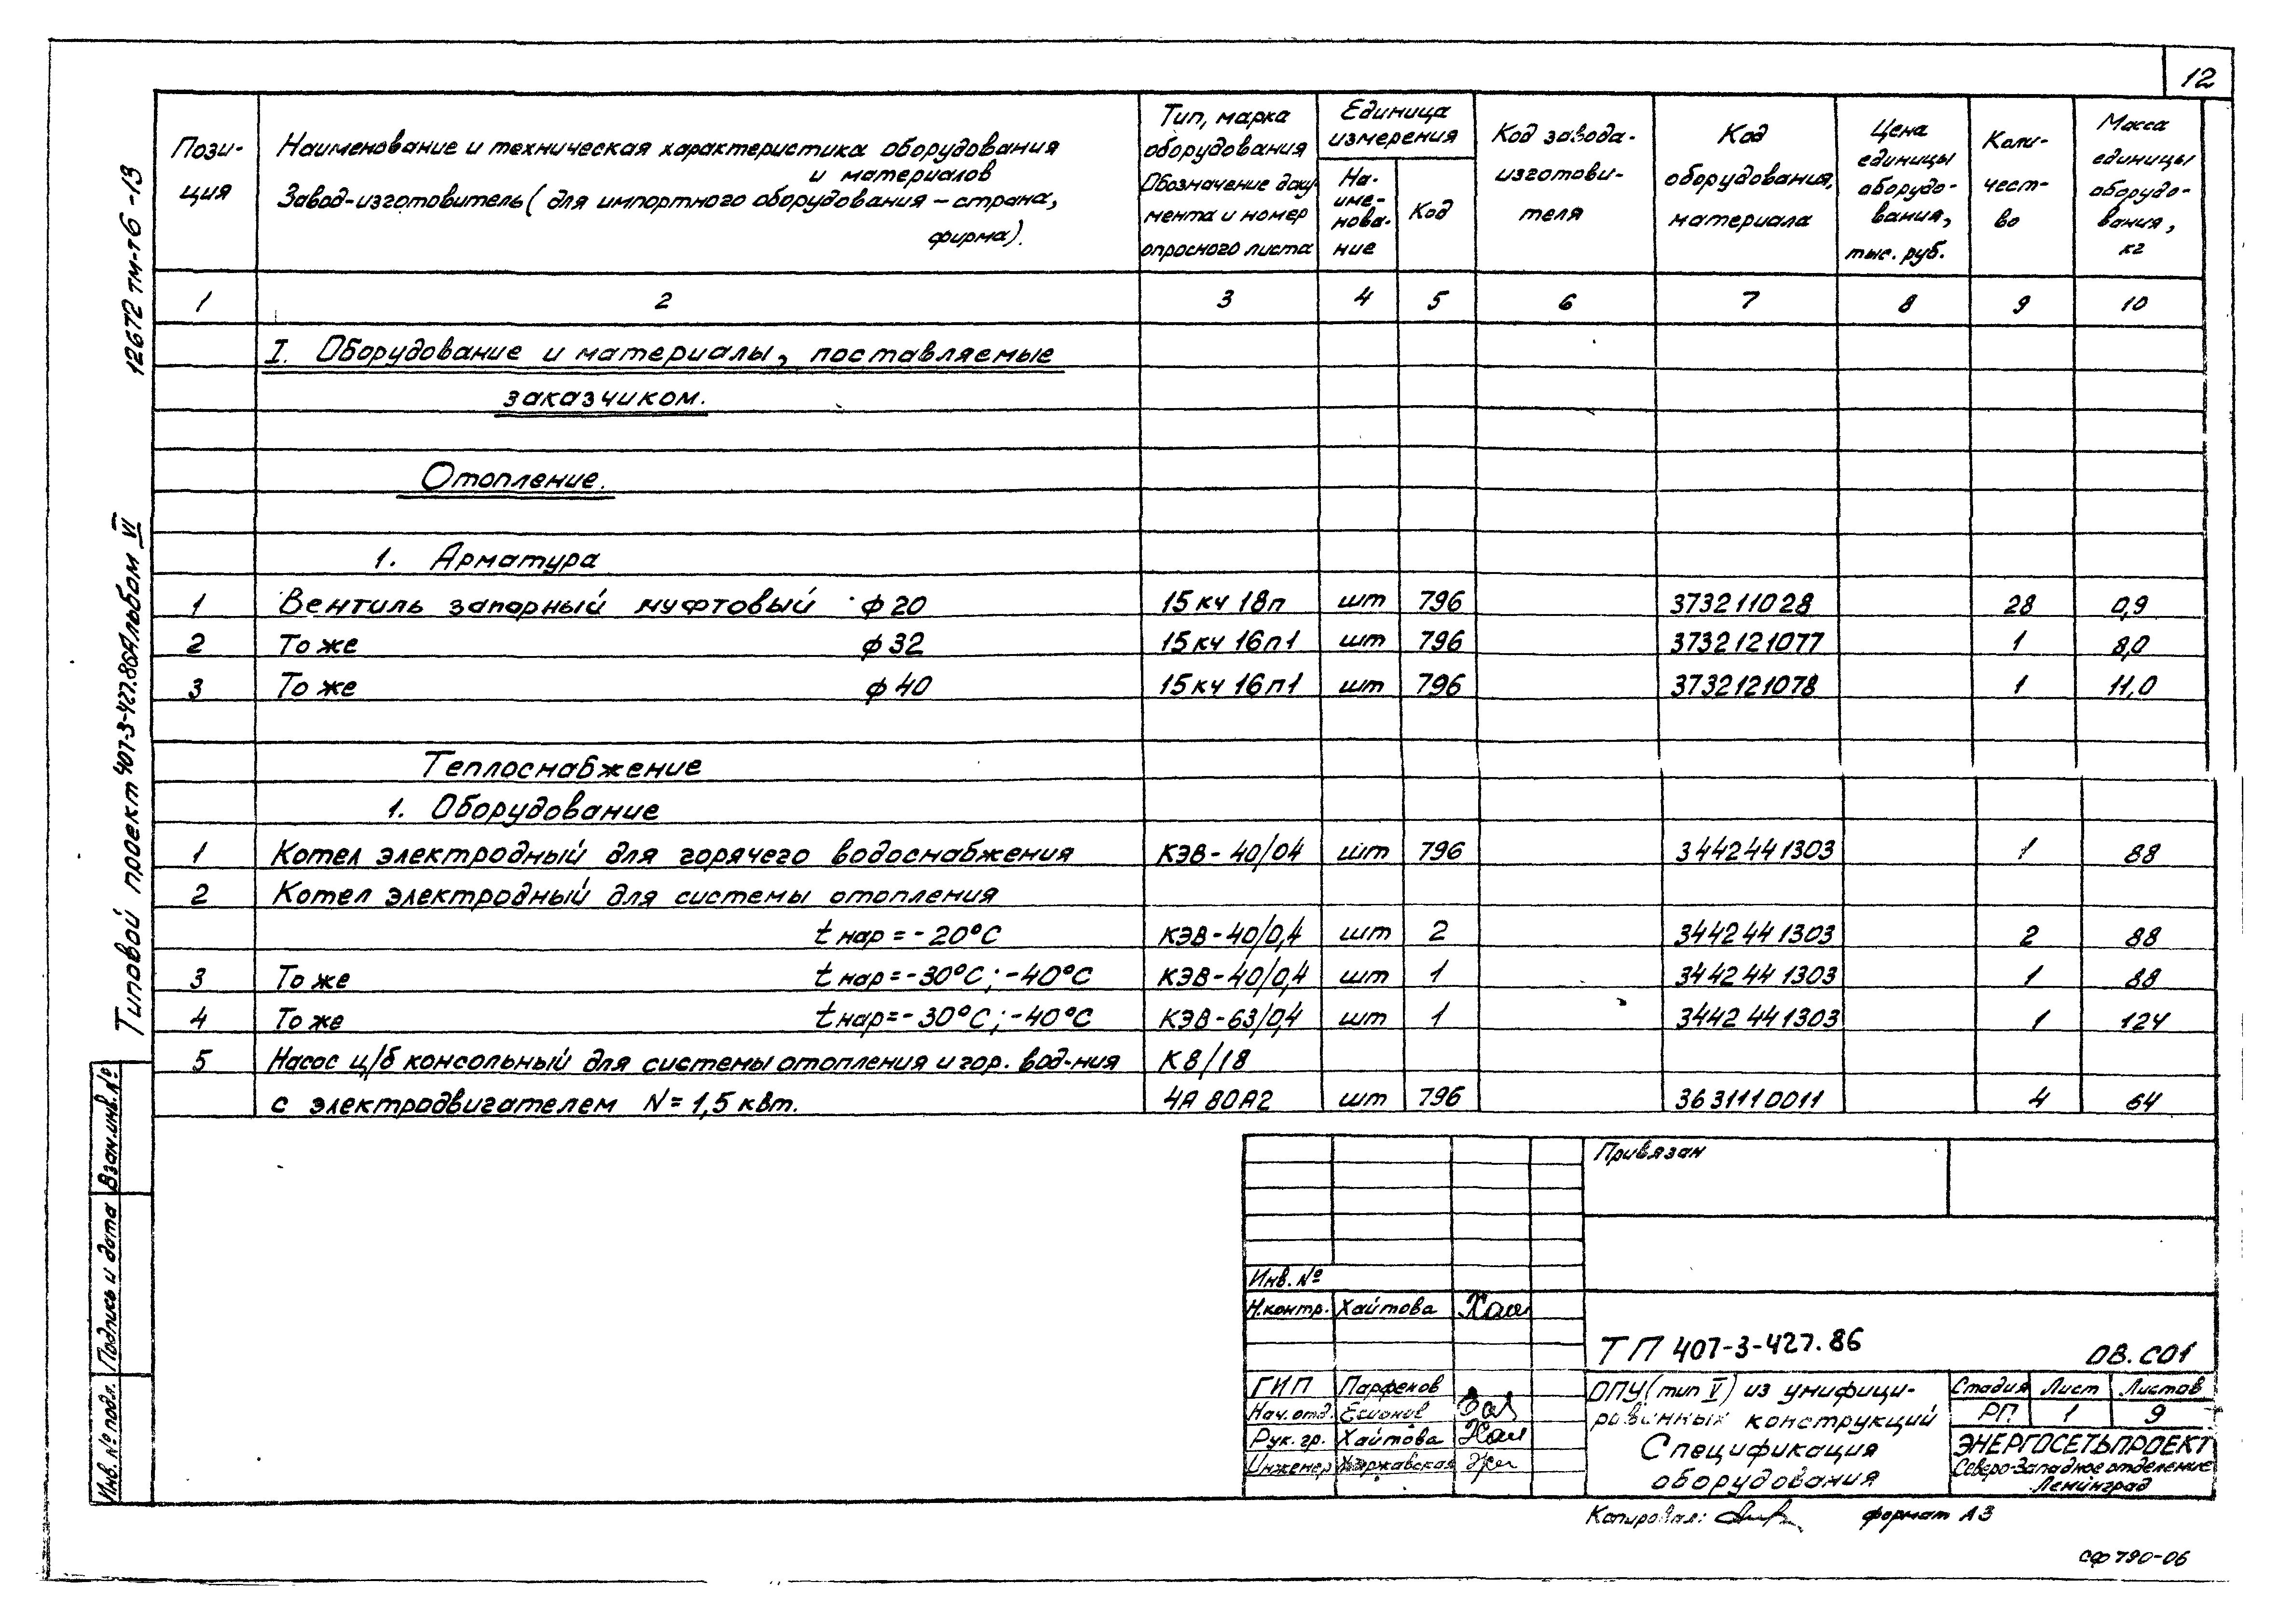 12
12672 тм-т6 -13
Типовой проект 407-3-427.86 Альбом VI
Пози-
ция
Наименование и техническая характеристика оборудования
и материалов
Завод-изготовитель (для импортного оборудования – страна,
фирма).
Тип, марка
оборудования
Обозначение доку-
мента и номер
опросного листа
Единица
измерения
На-
име-
нова-
ние
Код
Код завода-
изготови-
теля
Код
оборудования,
материала
Цена
единицы
оборудо-
вания,
тыс. руб.
Коли-
чест-
во
Масса
единицы
оборудо-
вания,
кг
1 2 3 4 5 6 7 8 9 10
I. Оборудование и материалы, поставляемые
заказчиком.
Отопление.
1. Арматура
1 Вентиль запорный муфтовый ф20 15кч 18п шт 796 373211028 28 0,9
2 То же ф32 15кч 16п1 шт 796 3732121077 1 8,0
3 То же ф40 15кч 16п1 шт 796 3732121078 1 11,0
Теплоснабжение
1. Оборудование
1 Котел электродный для горячего водоснабжения КЭВ-40/04 шт 796 3442441303 1 88
2 Котел электродный для системы отопления
t нар = -20°С КЭВ-40/0,4 шт 2 3442441303 2 88
3 То же t нар = -30°С; -40°С КЭВ-40/0,4 шт 1 3442441303 1 88
4 То же t нар = -30°С; -40°С КЭВ-63/0,4 шт 1 3442441303 1 124
5 Насос ц/б консольный для системы отопления и гор. вод-ния К8/18
с электродвигателем N = 1,5 квт. 4А 80А2 шт 796 3631110011 4 64
Взам.инв.№
Подпись и дата
Инв. № подл.
Привязан
Инв. №
Н.контр. Хаитова
ТП 407-3-427.86 ОВ.СО1
ГИП Парфенов
Нач.отд.
Рук. гр. Хаитова
Инженер
ОПУ (тип V) из унифици-
рованных конструкций
Спецификация
оборудования
Стадия Лист Листов
РП 1 9
ЭНЕРГОСЕТЬПРОЕКТ
Северо-Западное отделение
Ленинград
Копировал: формат А3
СФ 790-06